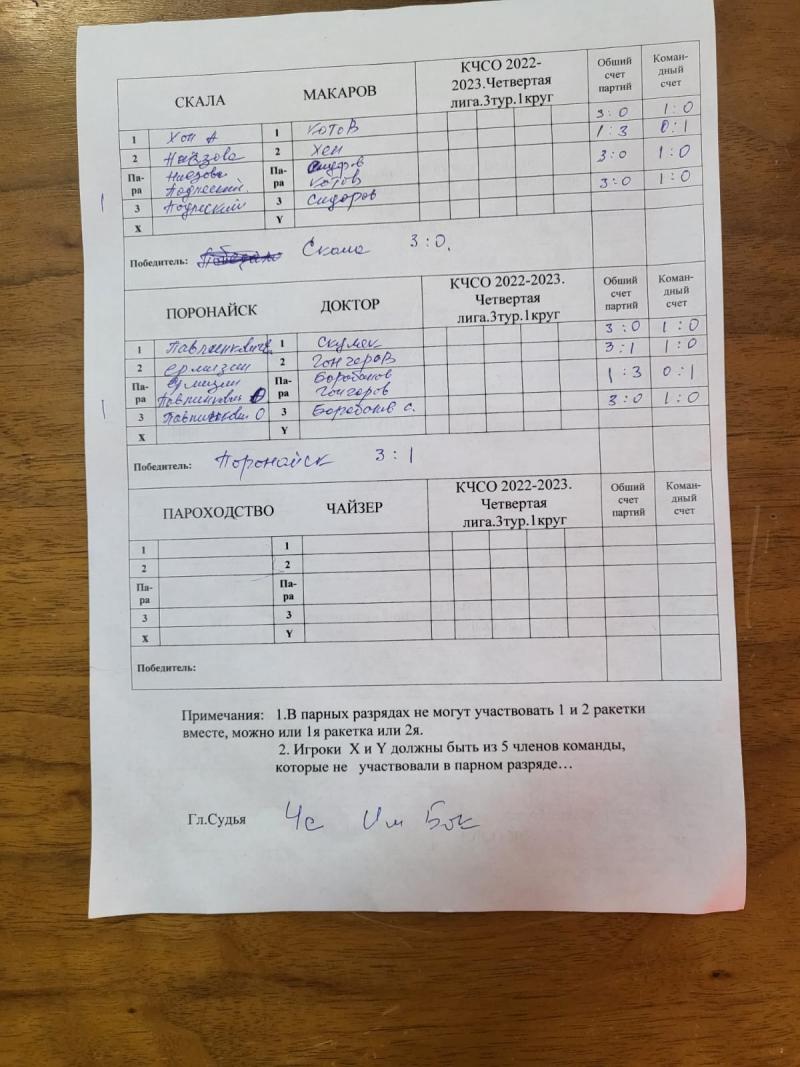 СКАЛА МАКАРОВ КЧСО 2022-2023.Четвертая лига.3тур.1круг Общий счет партий Коман-дный счет
1 Хон А 1 Котов 3:0 1:0
2 2 Хен 1:3 0:1
Па-ра Па-ра 3:0 1:0
Котов
3 3 Сидоров 3:0 1:0
X Y
Победитель: Скала 3:0.
ПОРОНАЙСК ДОКТОР КЧСО 2022-2023. Четвертая лига.3тур.1круг Общий счет партий Коман-дный счет
1 1 3:0 1:0
2 2 Гончаров 3:1 1:0
Па-ра Па-ра Барабанов 1:3 0:1
Гончаров
3 3 Барабанов с. 3:0 1:0
X Y
Победитель: Поронайск 3:1
ПАРОХОДСТВО ЧАЙЗЕР КЧСО 2022-2023. Четвертая лига.3тур.1круг Общий счет партий Коман-дный счет
1 1
2 2
Па-ра Па-ра
3 3
X Y
Победитель:
Примечания: 1.В парных разрядах не могут участвовать 1 и 2 ракетки
вместе, можно или 1я ракетка или 2я.
2. Игроки X и Y должны быть из 5 членов команды,
которые не участвовали в парном разряде…
Гл.Судья